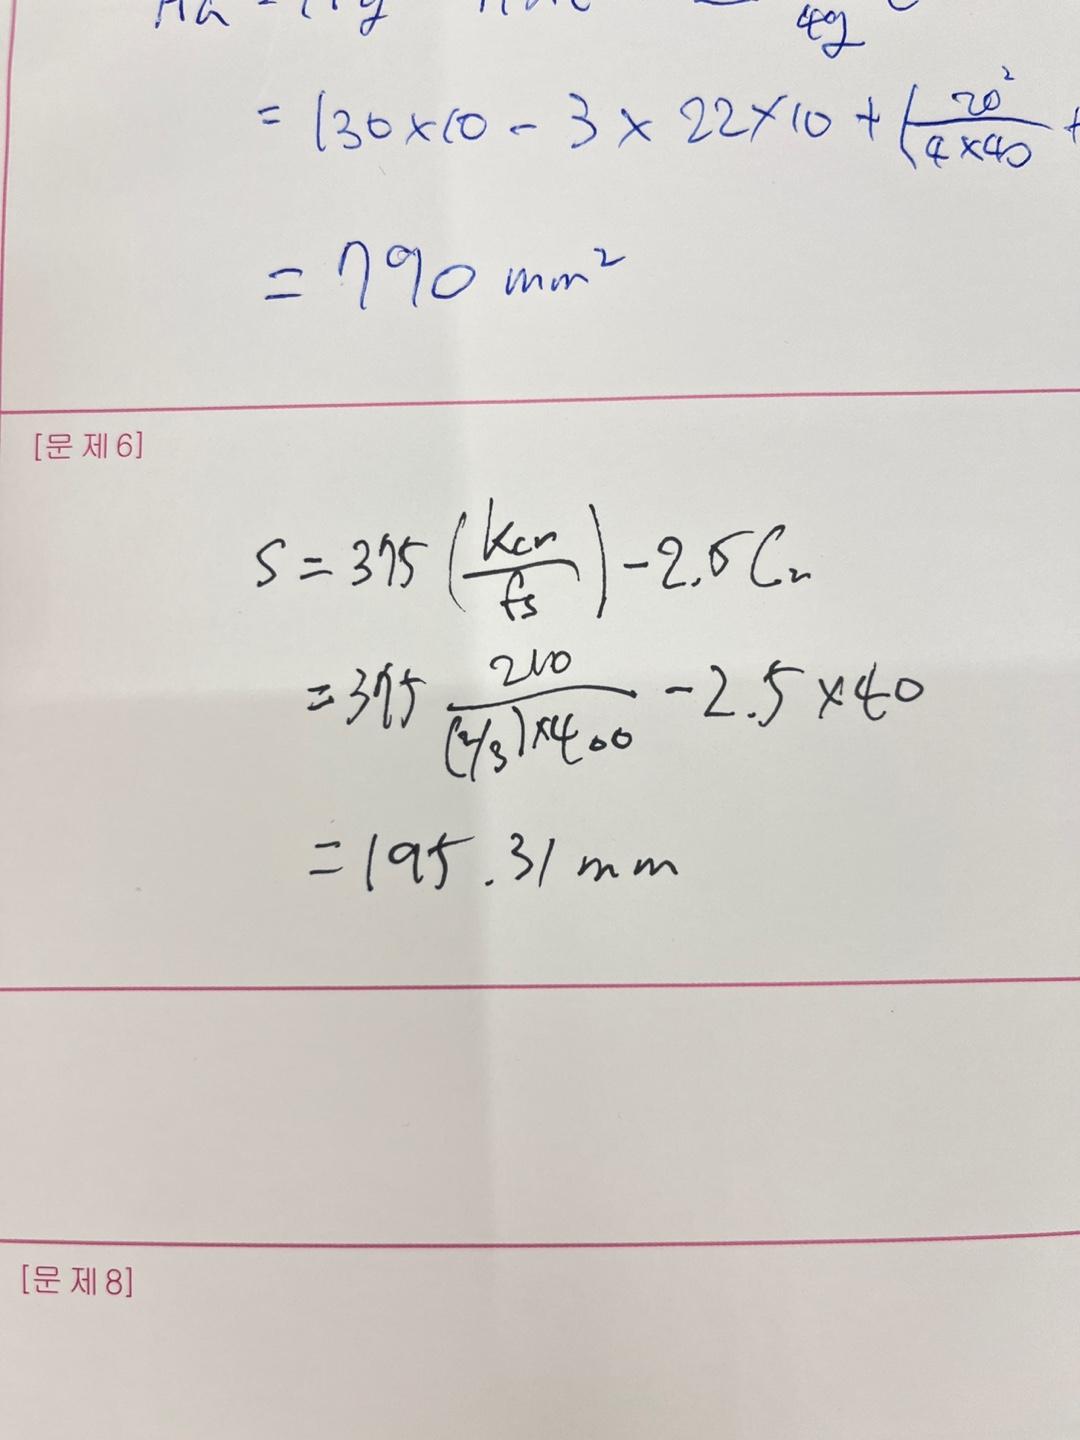 = 130×10 - 3 × 22×10 + (20²/4×40 +
= 790 mm²
[문제6]
S = 375 (kcr/fs) - 2.5Cc
= 375 210/(2/3)×400 - 2.5 ×40
= 195.31 mm
[문제8]